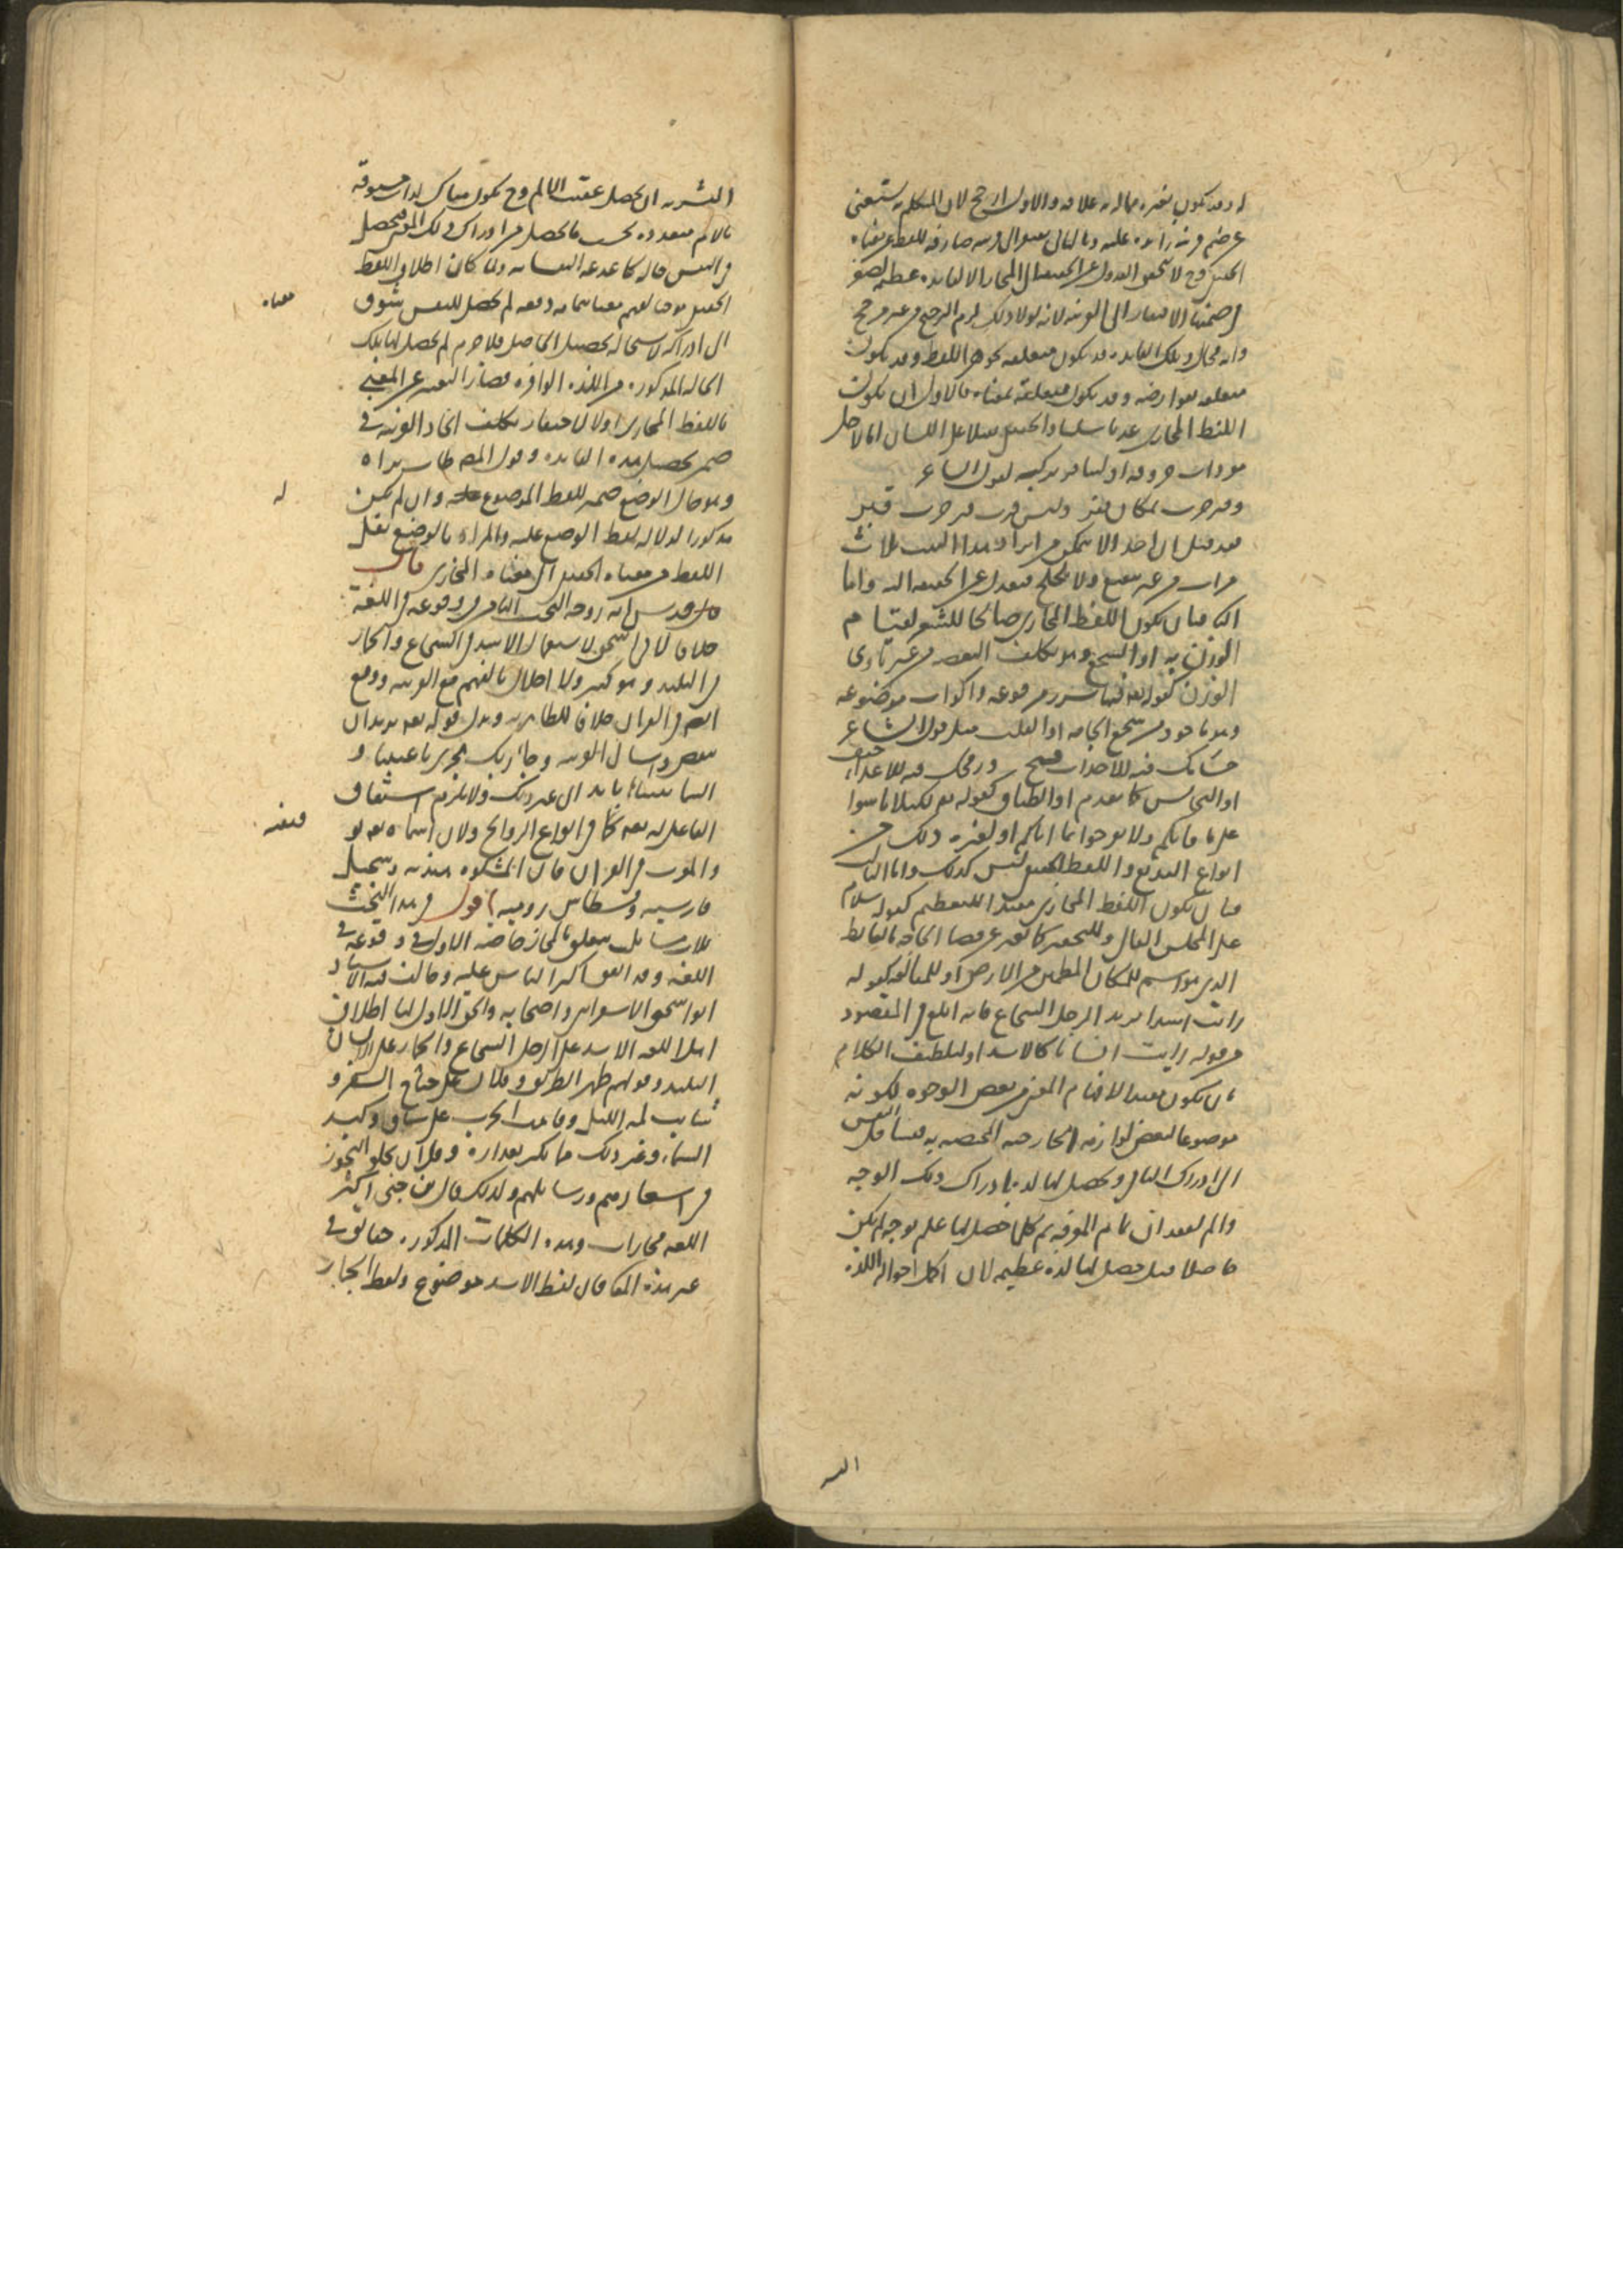 له وقد يكون بغيره مما له به علاقة والاول ارجح لان المتكلم به يستغنى
عن ضم قرينة زائدة عليه وبالثاني يفتقر الى قرينة صارفة للفظ عن معناه
الحقيقي وح لا يتحقق العدول عن الحقيقة الى المجاز الا لفائدة عظيمة
في ضمنها الافتقار الى القرينة لانه لولا ذلك لزم الترجيح من غير مرجح
وانه محال وتلك الفائدة قد يكون متعلقة بجوهر اللفظ وقد يكون
متعلقة بعوارضه وقد يكون متعلقة بمعناه فالاول ان يكون
اللفظ المجازى عذبا سلسا والحقيقي ثقيلا على اللسان اما لاجل
مفردات حروفه او لتنافر تركيبه كقول الشاعر
وقبر حرب بمكان قفر وليس قرب قبر حرب قبر
فقد قيل ان احدا لا يتمكن من ايراد هذا البيت ثلاث
مرات من غير تتعتع ولا تلجلج فيعدل عن الحقيقة اليه واما
الثانى فبان يكون اللفظ المجازى صالحا للشعر لقيام
الوزن به او السجع وهو تكلف التقفية من غير تادى
الوزن كقوله تع فيها سرر مرفوعة واكواب موضوعة
وهو ماخوذ من سجع الحمامة او القلب مثل قول الشاعر
حسامك فيه للاحباب فتح ورمحك فيه للاعداء حتف
او التجانس كما تقدم او الطباق كقوله تع لكيلا تاسوا
على ما فاتكم ولا تفرحوا بما اتاكم او لغيره ذلك من
انواع البديع واللفظ الحقيقي ليس كذلك واما الثالث
فبان يكون اللفظ المجازى مفيدا للتعظيم كقوله سلام
على المجلس العالى وللتحقير كما تعبر عن قضا الحاجة بالغايط
الذى هو اسم للمكان المطمئن من الارض او للمبالغة كقوله
رايت اسدا يريد الرجل الشجاع فانه ابلغ فى المقصود
من قوله رايت انسانا كالاسد او لتلطيف الكلام
بان يكون مفيدا لافهام المعنى من بعض الوجوه لكونه
موضوعا لبعض لوازمه الخارجية المختصة به فيتشاق النفس
الى ادراك الثانى ويحصل لها لذة بادراك ذلك الوجه
والم لفقدان تمام المعرفة ثم كلما حصل لها علم بوجه لم يكن
حاصلا قبل حصل لها لذة عظيمة لان اكمل احوال اللذة
البشرية ان يحصل عقيب الالم وح يكون هناك لذات مسبوقة
بالآلام متعددة بحسب ما يحصل من ادراك ذلك المعنى فيحصل
فى النفس حالة كالدغدغة النفسانية ولما كان اطلاق اللفظ
الحقيقي موجبا لفهم معناه بتمامه دفعة لم يحصل للنفس شوق
معناه
الى ادراكه لاستحالة تحصيل الحاصل فلا جرم لم يحصل لها تلك
الحالة المذكورة من اللذة الوافرة فصار التعبير عن المعنى
باللفظ المجازى اولى لاحتقار تكلف اتحاد القرينة فى
ضمن تحصيل هذه الفائدة وقول المص
وهو حال الوضع ضمير للفظ الموضوع وان لم يكن
له
مذكورا لدلالة لفظ الوضع عليه والمراد بالوضع نقل
اللفظ من معناه الحقيقي الى معناه المجازى قال
قدس الله روحه البحث الثامن فى وقوعه فى اللغة
خلافا لابى اسحق لاستعمال الاسد فى الشجاع والحمار
فى البليد وهو كثير ولا اخلال بالفهم مع القرينة ووقع
ايضا فى القران خلافا للظاهرية ويدل قوله تع يريد ان
ينقض واسال القرية وجاء ربك تجرى باعيننا و
السماء بنيناها بايد الى غير ذلك ولا يلزم اشتقاق
الفاعل له تعالى كما فى انواع الروايح ولان اسماءه توقيفية
فيقفية
والمعرب فى القران فان المشكوة هندية وسجيل
فارسية وقسطاس رومية اقول فى هذا البحث
ثلاث مسائل يتعلق بالمجاز خاصة الاولى فى وقوعه فى
اللغة وقد اتفق اكثر الناس عليه وخالف فيه الاستاد
ابو اسحق الاسفراينى واصحابه والحق الاول لنا اطلاق
اهل اللغة الاسد على الرجل الشجاع والحمار على الانسان
البليد وقولهم ظهر الطريق وفلان على جناح السفر و
شابت لمة الليل وقامت الحرب على ساق وكبد
السماء وغير ذلك مما يكثر تعداده وقل ان يخلو التجوز
فى اشعارهم ورسايلهم ولذلك قال ابن جنى اكثر
اللغة مجازات وهذه الكلمات المذكورة حقايق فى
غير هذه المعانى فان لفظ الاسد موضوع ولفظ الحمار
البشرية